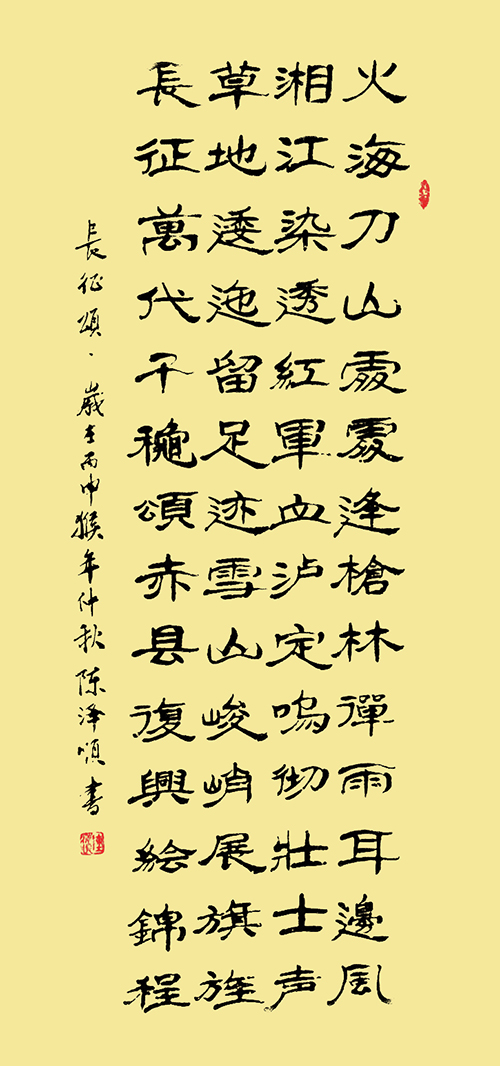 火海刀山處處逢槍林彈雨耳邊風
湘江染透紅軍血泸定鳴彻壯士声
草地逶迤留足迹雪山峻峭展旗旌
長征萬代千穐頌赤县復興絵錦程
長征頌、歲在丙申猴年仲秋陈泽順書